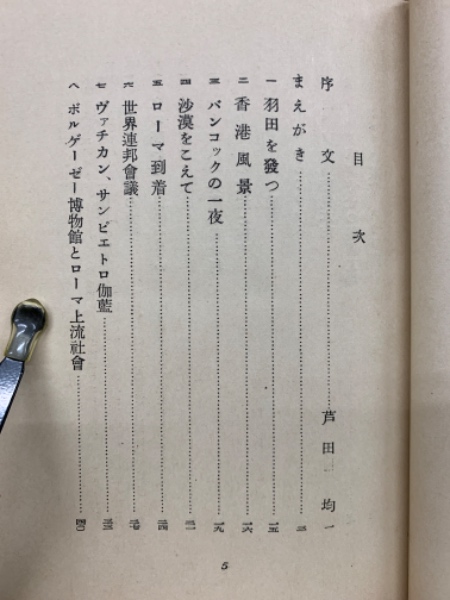 目次
序文 芦田均 一
まえがき 三
一 羽田を發つ 一五
二 香港風景 一六
三 バンコックの一夜 一九
四 沙漠をこえて 二一
五 ローマ到着 二四
六 世界連邦會議 二七
七 ヴァチカン、サンピエトロ伽藍 三三
八 ボルゲーゼー博物館とローマ上流社會 四〇
5